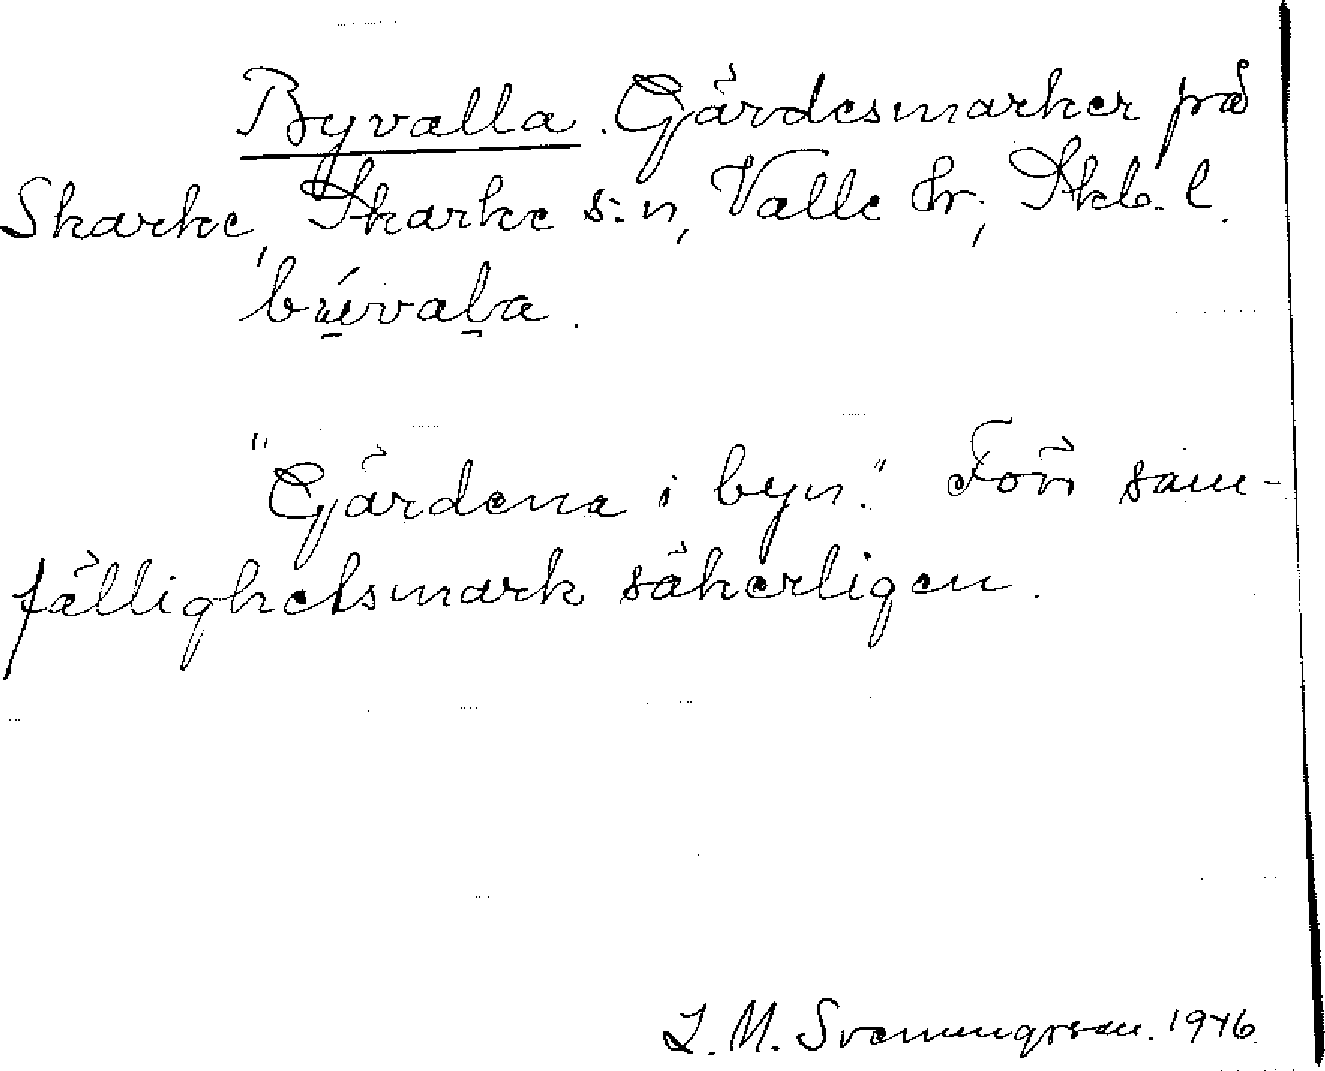 Byvalla. Gärdesmarker på
Skarke, Skarke s:n, Valle hr, Skb. l.
"Gärdena i byn." Förr sam-
fällighetsmark säkerligen.
L. M. Svenungsson. 1946